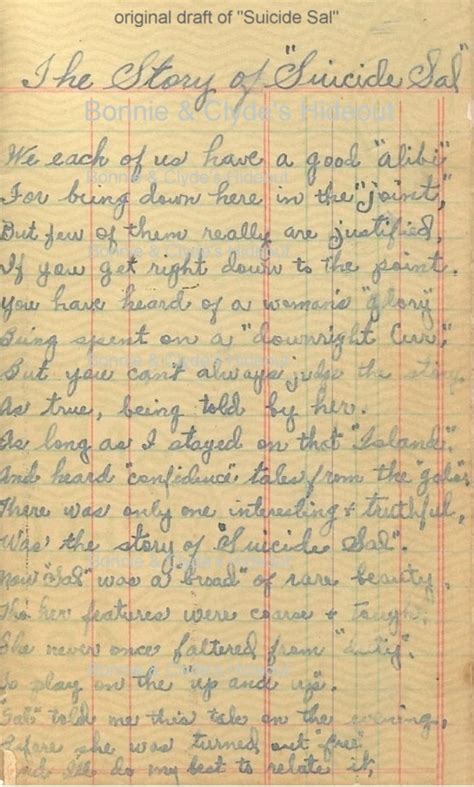 original draft of "Suicide Sal"
The Story of "Suicide Sal"
Bonnie & Clyde's Hideout
We each of us have a good "alibi"
Bonnie & Clyde's Hideout
For being down here in the "joint,"
But few of them really are justified,
Bonnie & Clyde's Hideout
If you get right down to the point.
You have heard of a woman's "glory"
Being spent on a "downright Cur",
Bonnie & Clyde's Hideout
But you can't always judge the story
As true, being told by her.
As long as I stayed on that "Island",
Bonnie & Clyde's Hideout
And heard "confidence" tales from the "gals"
There was only one interesting & truthful,
Was the story of "Suicide Sal".
Bonnie & Clyde's Hideout
Now "Sal" was a "broad" of rare beauty,
Tho her features were coarse & tough.
She never once faltered from "duty".
Bonnie & Clyde's Hideout
To play on the up and up".
"Sal" told me this tale on the evening,
Before she was turned out "free"
And I'll do my best to relate it,